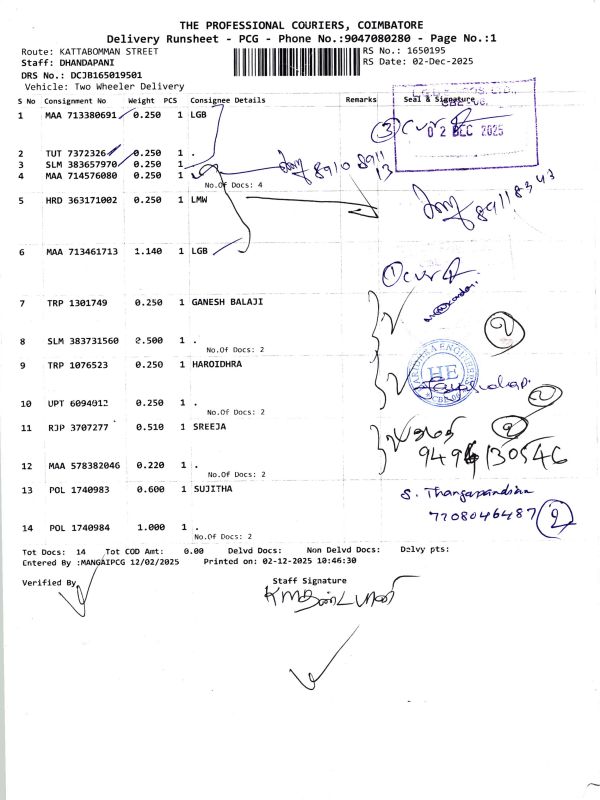 THE PROFESSIONAL COURIERS, COIMBATORE
Delivery Runsheet - PCG - Phone No.:9047080280 - Page No.:1
Route: KATTABOMMAN STREET RS No.: 1650195
Staff: DHANDAPANI RS Date: 02-Dec-2025
DRS No.: DCJB165019501
Vehicle: Two Wheeler Delivery
S No Consignment No Weight PCS Consignee Details Remarks Seal & Signature
1 MAA 713380691 0.250 1 LGB
3
02 DEC 2025
2 TUT 7372326 0.250 1 .
3 SLM 383657970 0.250 1
4 MAA 714576080 0.250 1
8910 8911
13
No.Of Docs: 4
5 HRD 363171002 0.250 1 LMW
89118343
6 MAA 713461713 1.140 1 LGB
1
7 TRP 1301749 0.250 1 GANESH BALAJI
2
8 SLM 383731560 2.500 1 .
No.Of Docs: 2
9 TRP 1076523 0.250 1 HAROIDHRA
HE
2
10 UPT 6094012 0.250 1 .
No.Of Docs: 2
11 RJP 3707277 0.510 1 SREEJA
2
9494130546
12 MAA 578382046 0.220 1 .
No.Of Docs: 2
13 POL 1740983 0.600 1 SUJITHA
S. Thangapandian
7708046487 2
14 POL 1740984 1.000 1 .
No.Of Docs: 2
Tot Docs: 14 Tot COD Amt: 0.00 Delvd Docs: Non Delvd Docs: Delvy pts:
Entered By :MANGAIPCG 12/02/2025 Printed on: 02-12-2025 10:46:30
Verified By Staff Signature